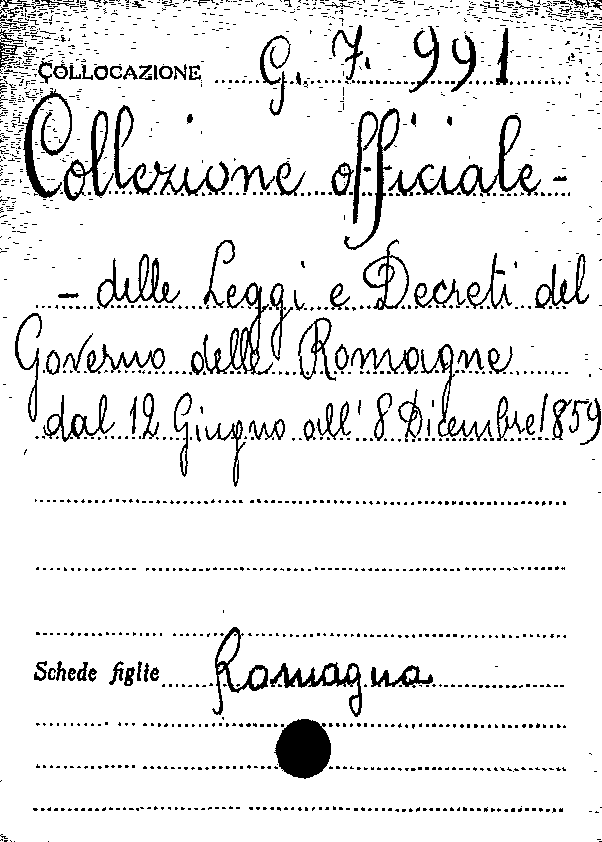 COLLOCAZIONE G. 7. 991
Collezione officiale -
- delle Leggi e Decreti del
Governo delle Romagne
dal 12 Giugno all' 8 Dicembre 1859
Schede figlie Romagna